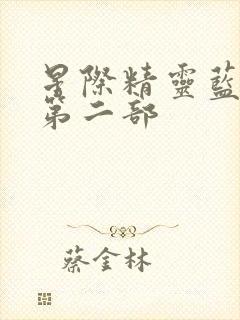 星際精靈藍
第二部
蔡金林